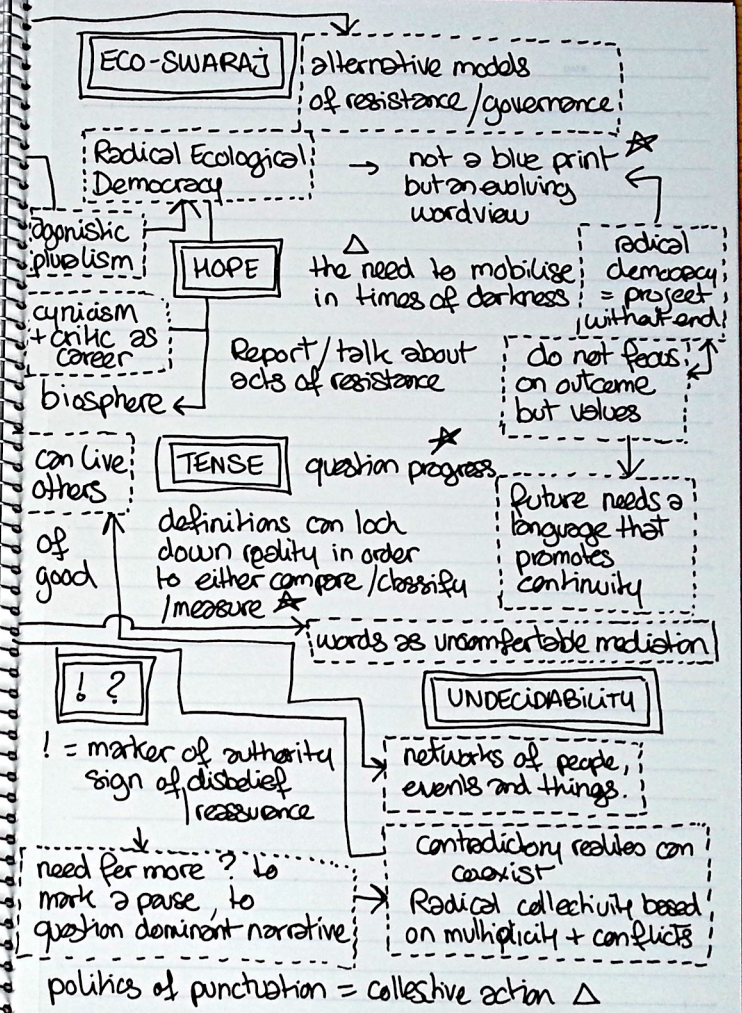 ECO-SWARAJ
alternative models
of resistance/governance
Radical Ecological
Democracy
→ not a blue print
but an evolving
wordview
agonistic
pluralism
HOPE
the need to mobilise
in times of darkness
radical
democracy
= project
without end
cynicism
+ critic as
career
Report/talk about
acts of resistance
do not focus
on outcome
but values
biosphere
can live
others
TENSE
question progress
future needs a
language that
promotes
continuity
of
good
definitions can lock
down reality in order
to either compare/classify
/measure
words as uncomfertable mediation
! ?
UNDECIDABILITY
! = marker of authority
sign of disbelief
/reassurance
networks of people,
events and things.
need for more ? to
mark a pause, to
question dominant narrative
contradictory realites can
coexist
Radical collectivity based
on multiplicity + conflicts
politics of punctuation = collective action △